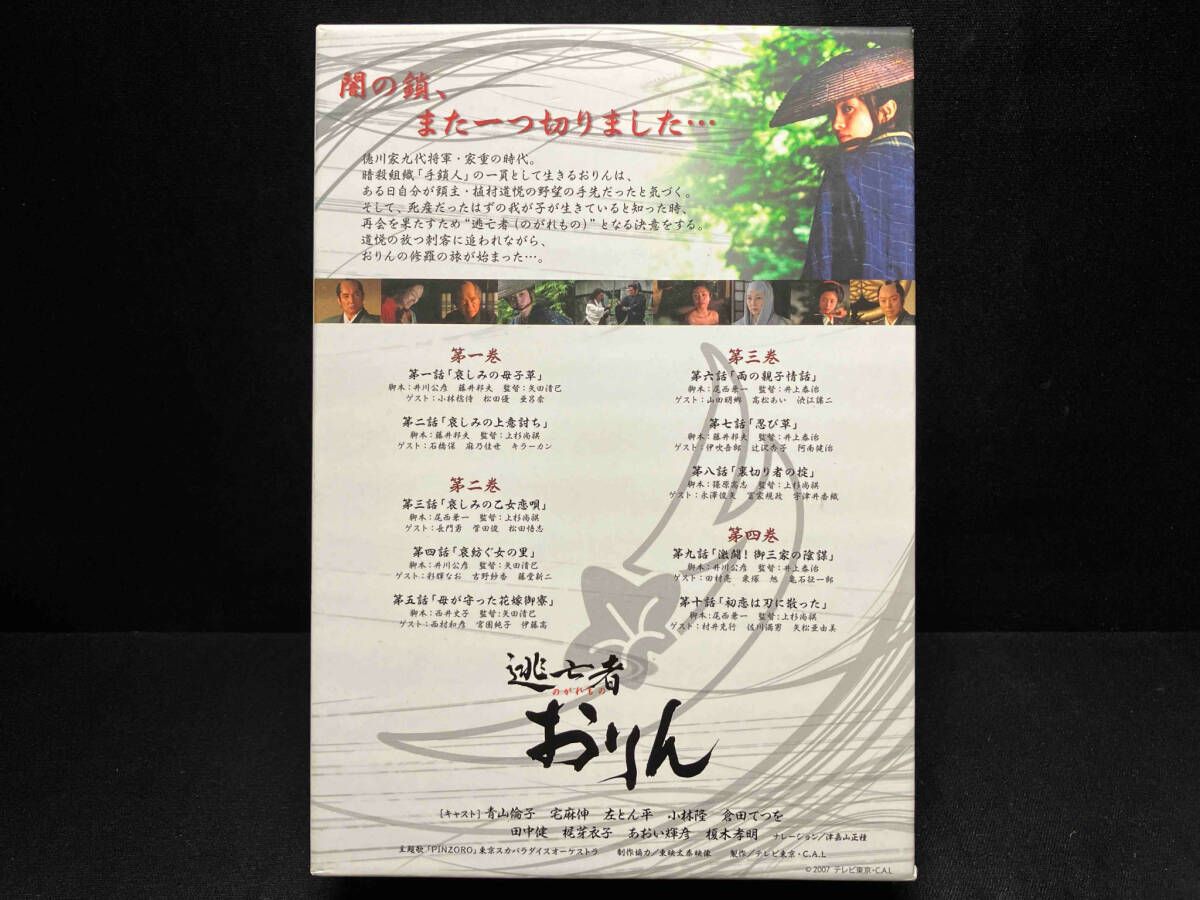 闇の鎖、
また一つ切りました…
徳川家九代将軍・家重の時代。
暗殺組織「手鎖人」の一員として生きるおりんは、
ある日自分が頭主・植村道悦の野望の手先だったと気づく。
そして、死産だったはずの我が子が生きていると知った時、
再会を果たすため“逃亡者(のがれもの)”となる決意をする。
道悦の放つ刺客に追われながら、
おりんの修羅の旅が始まった…。
第一巻
第一話「哀しみの母子草」
脚本:井川公彦 藤井邦夫 監督:矢田清巳
ゲスト:小林稔侍 松田優 亜呂奈
第二話「哀しみの上意討ち」
脚本:藤井邦夫 監督:上杉尚祺
ゲスト:石橋保 麻乃佳世 キラーカン
第二巻
第三話「哀しみの乙女恋唄」
脚本:尾西兼一 監督:上杉尚祺
ゲスト:長門勇 菅田俊 松田悟志
第四話「哀紡ぐ女の里」
脚本:井川公彦 監督:矢田清巳
ゲスト:彩輝なお 吉野紗香 藤堂新二
第五話「母が守った花嫁御寮」
脚本:西井史子 監督:矢田清巳
ゲスト:西村和彦 宮園純子 伊藤高
第三巻
第六話「雨の親子情話」
脚本:尾西兼一 監督:井上泰治
ゲスト:山田明郷 高松あい 渋江譲二
第七話「忍び草」
脚本:藤井邦夫 監督:井上泰治
ゲスト:伊吹吾郎 辻沢杏子 阿南健治
第八話「裏切り者の掟」
脚本:篠原高志 監督:上杉尚祺
ゲスト:永澤俊矢 冨家規政 宇津井香織
第四巻
第九話「激闘!御三家の陰謀」
脚本:井川公彦 監督:井上泰治
ゲスト:田村亮 栗塚旭 亀石征一郎
第十話「初恋は刃に散った」
脚本:尾西兼一 監督:上杉尚祺
ゲスト:村井克行 佐川満男 矢松亜由美
逃亡者
のがれもの
おりん
[キャスト]青山倫子 宅麻伸 左とん平 小林隆 倉田てつを
田中健 梶芽衣子 あおい輝彦 榎木孝明 ナレーション/津嘉山正種
主題歌「PINZORO」東京スカパラダイスオーケストラ 制作協力/東映太秦映像 製作/テレビ東京・C.A.L
©2007 テレビ東京・C.A.L